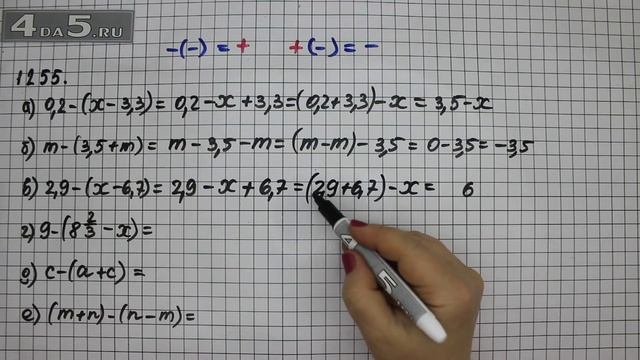 4DA5.RU
-(-) = + +(-) = -
1255.
а) 0,2-(x-3,3)= 0,2-x+3,3=(0,2+3,3)-x= 3,5-x
б) m-(3,5+m)= m-3,5-m=(m-m)-3,5= 0-3,5=-3,5
в) 2,9-(x-6,7)= 2,9-x+6,7=(2,9+6,7)-x= 6
г) 9-(8 2/3 -x)=
д) c-(a+c)=
е) (m+n)-(n-m)=
5